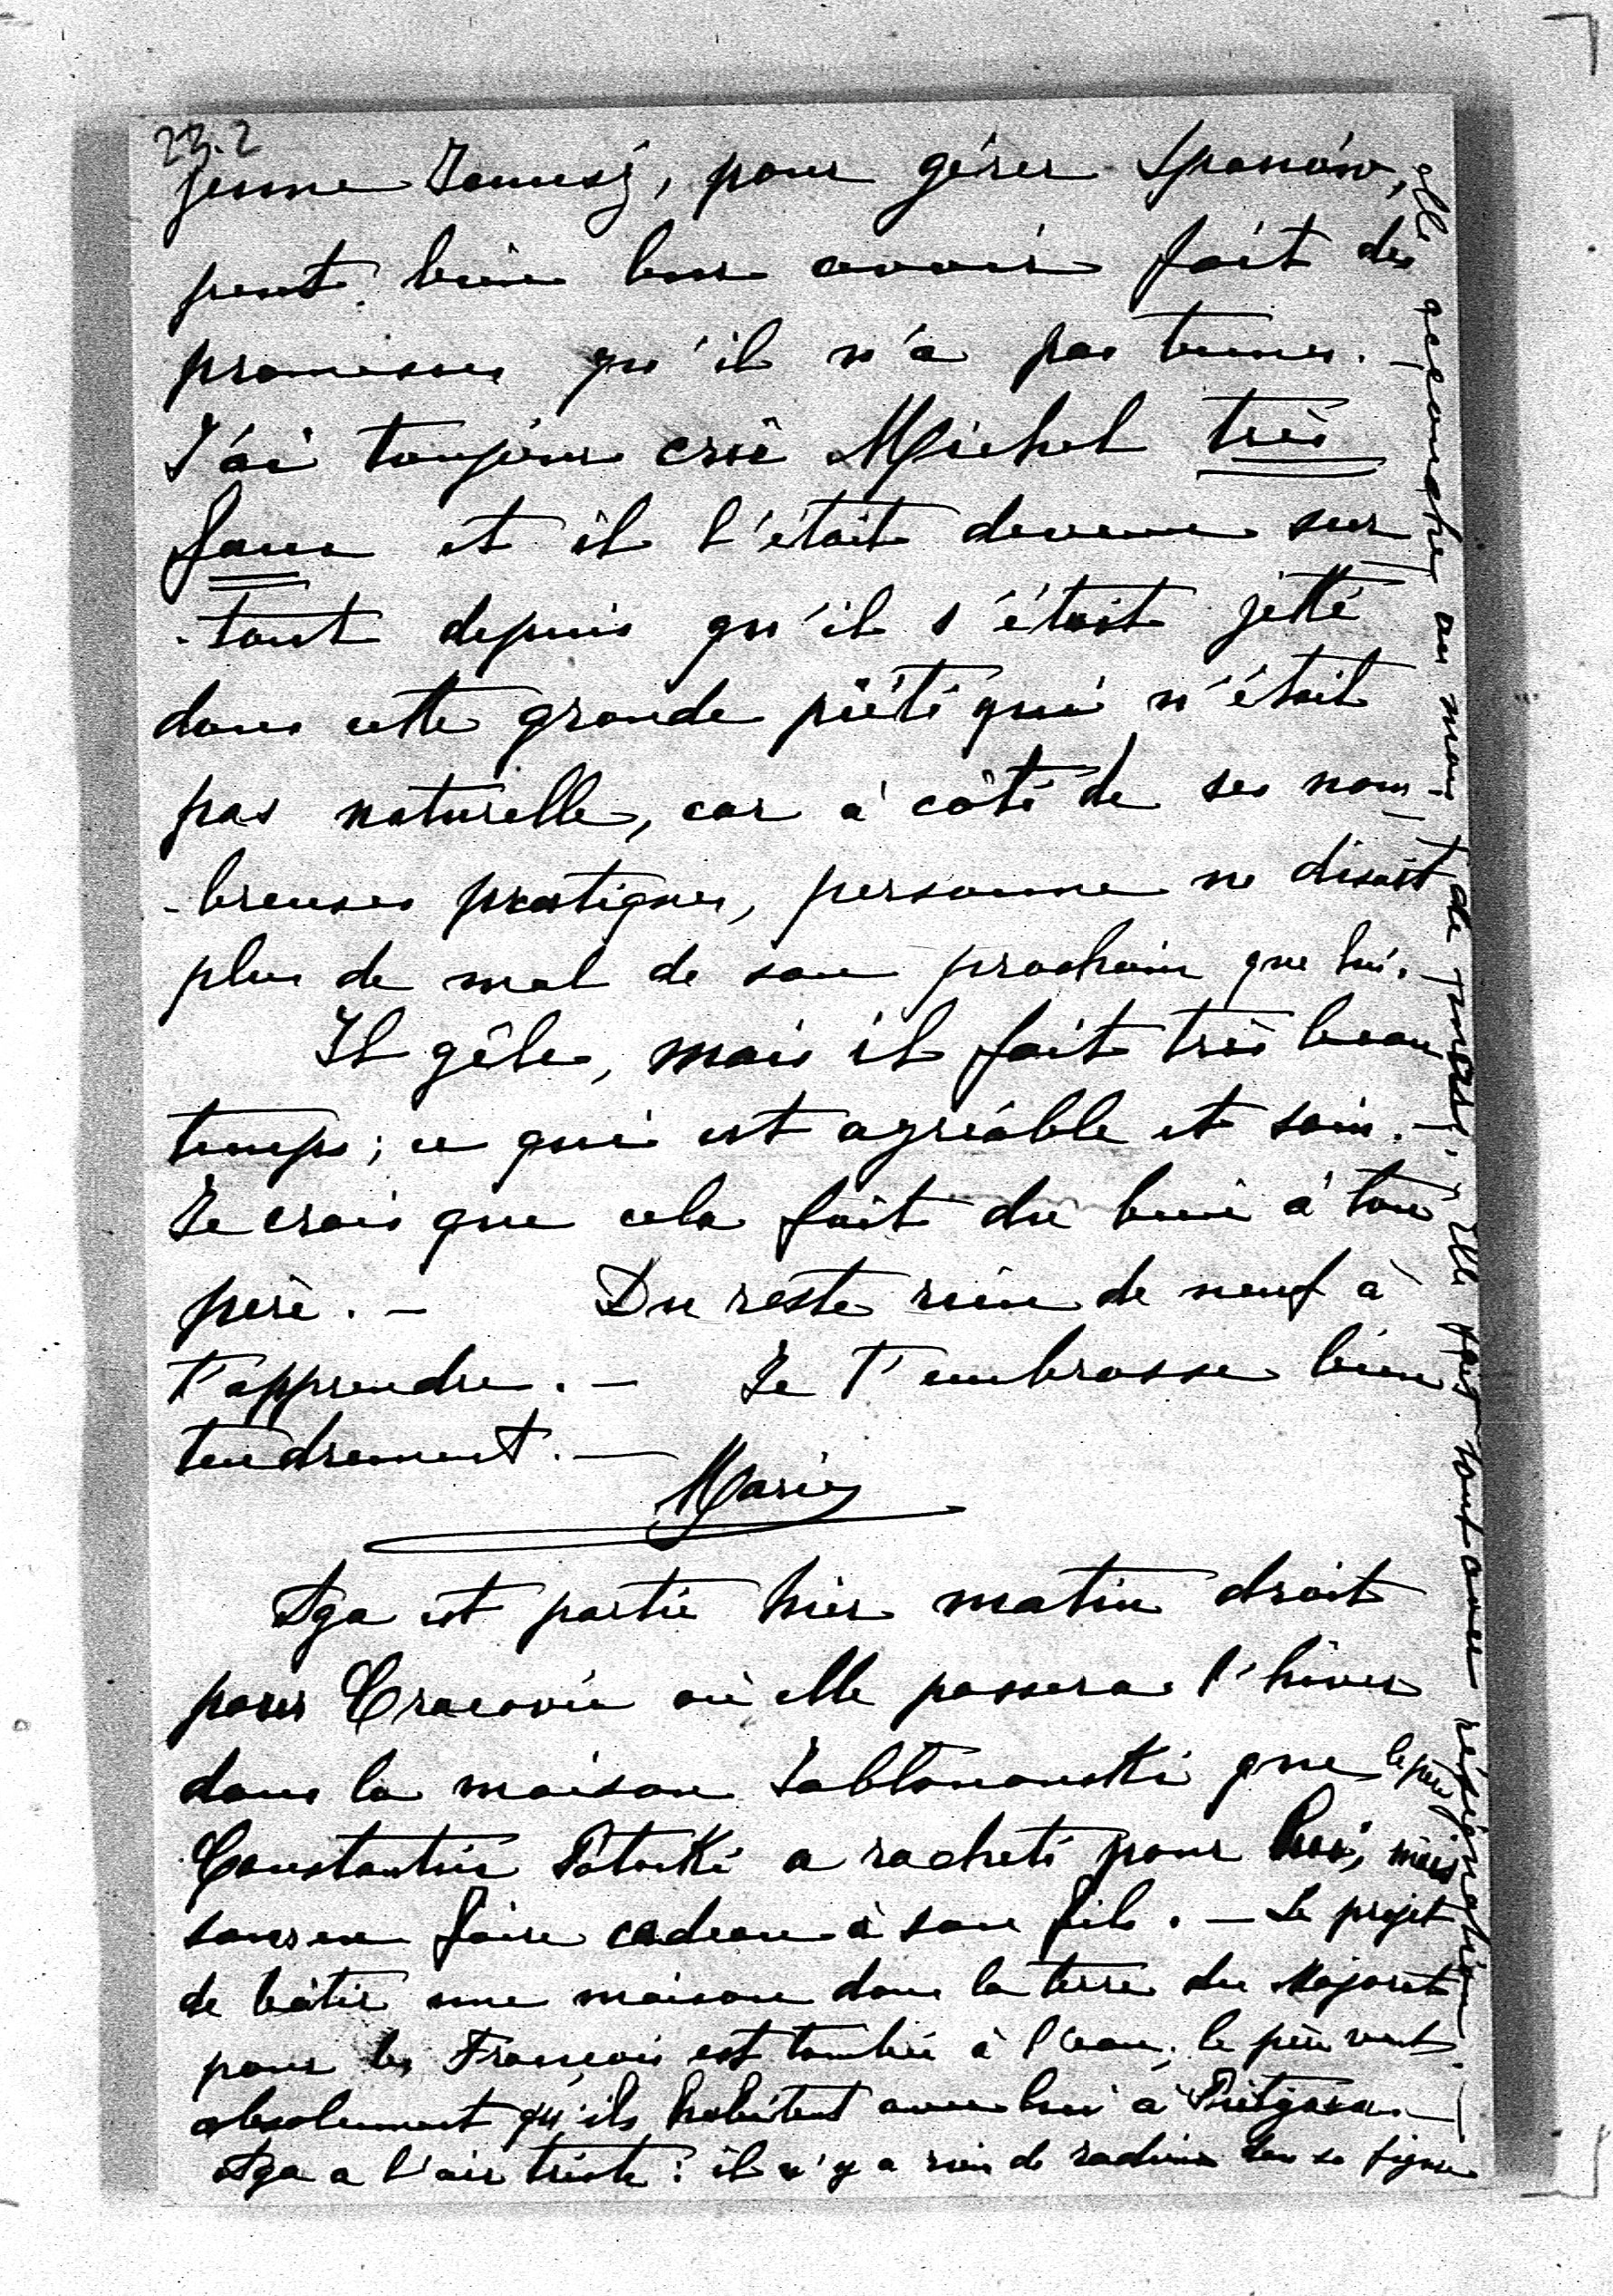 23.2
jeune Janusz, pour gérer Spanów,
peut bien leur avoir fait des
promesses qu'il n'a pas tenues. —
J'ai toujours crû Michel très
faux et il l'était devenu sur
-tout depuis qu'il s'était jetté
dans cette grande piété qui n'était
pas naturelle, car à côté de ses nom-
-breuses pratiques, personne ne disait
plus de mal de son prochain que lui. —
Il gèle, mais il fait très beau
temps; ce qui est agréable et sain. —
Je crois que cela fait du bien à ton
père. — Du reste rien de neuf à
t'apprendre. — Je t'embrasse bien
tendrement. —
Marie
Aga est partie hier matin droit
pour Cracovie où elle passera l'hiver
dans la maison Jabłonowski que le père
Constantin Potocki a racheté pour lui, mais
sans en faire cadeau à son fils. — Le projet
de bâtir une maison dans la terre du Majorat
pour les François est tombé à l'eau; le père veut
absolument qu'ils habitent avec lui à
Aga a l'air triste: il n'y a rien de radieux dans sa figure
elle accouchera au mois de mars; elle fait tout avec résignation. —